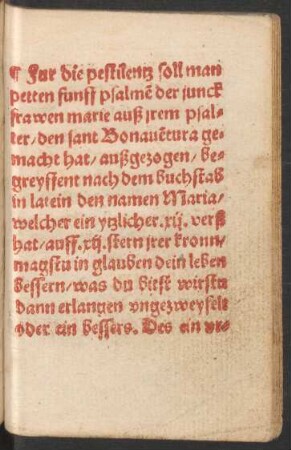 ¶ Fur die pestilentz soll man
petten funff psalmē der junck
frawen marie auß jrem psal-
ter/ den sant Bonauētura ge-
macht hat/ außgezogen/ be-
greyffent nach dem buchstab
in latein den namen Maria/
welcher ein ytzlicher .xij. verß
hat/ auff .xij. stern jrer kronn/
magstu in glauben dein leben
bessern/ was du bist wirstu
dann erlangen vngezweyfelt
oder ein bessers. Des ein vr-